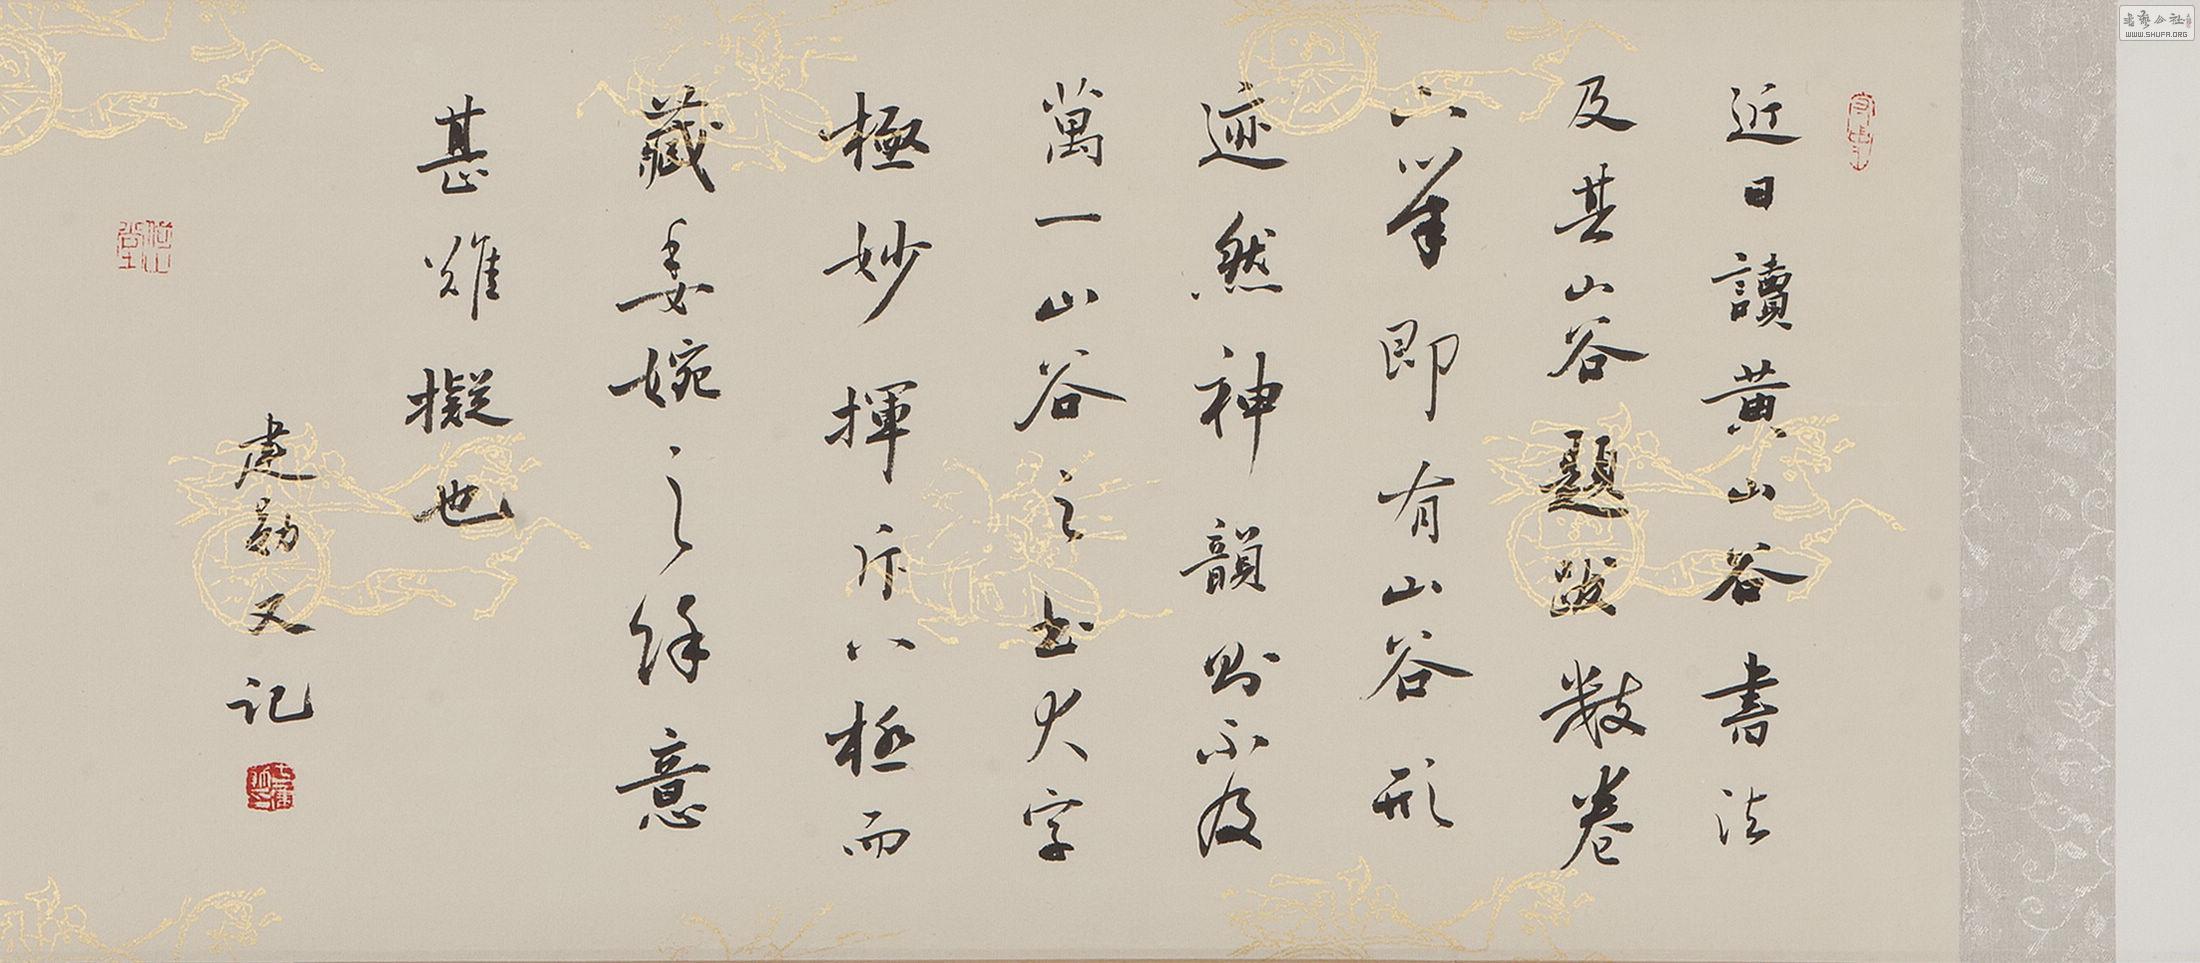 近日讀黄山谷書法
及其山谷題跋數卷
下筆即有山谷形
迹然神韻則不及
萬一山谷之書大字
極妙揮斥八極而
藏委婉之餘意
甚難擬也
建勛又记
書藝公社
WWW.SHUFA.ORG